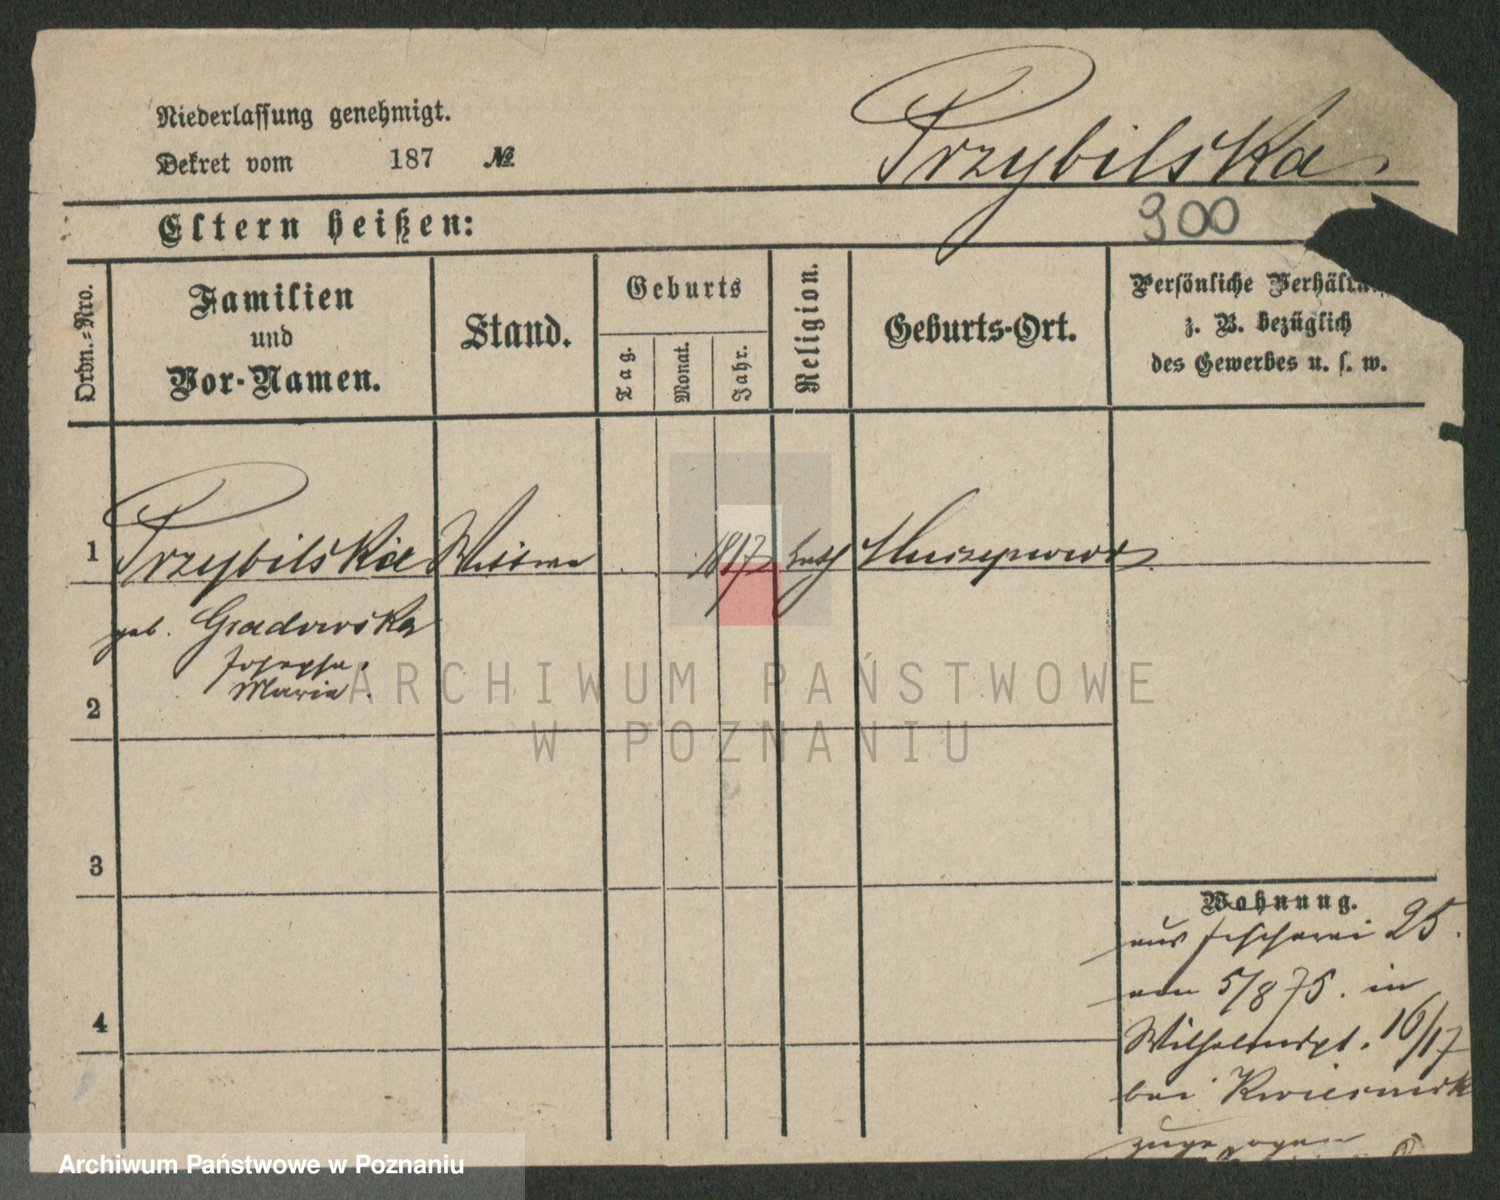 Niederlassung genehmigt.
Dekret vom 187 №
Przybilska.
Eltern heißen:
900
Ordn.-Nro.
Familien
und
Vor-Namen.
Stand.
Geburts
Tag.
Monat.
Jahr.
Religion.
Geburts-Ort.
Persönliche
z. B. bezüglich
des Gewerbes u. s. w.
1 Przybilska Wittwe 1817 kath
geb. Gradowska
Josepha
Maria
2
3
4
Wohnung.
aus Fischerei 25.
am 5/8 75. in
Wilhelmspl. 16/17
bei
zugezogen
ARCHIWUM PAŃSTWOWE
W POZNANIU
Archiwum Państwowe w Poznaniu